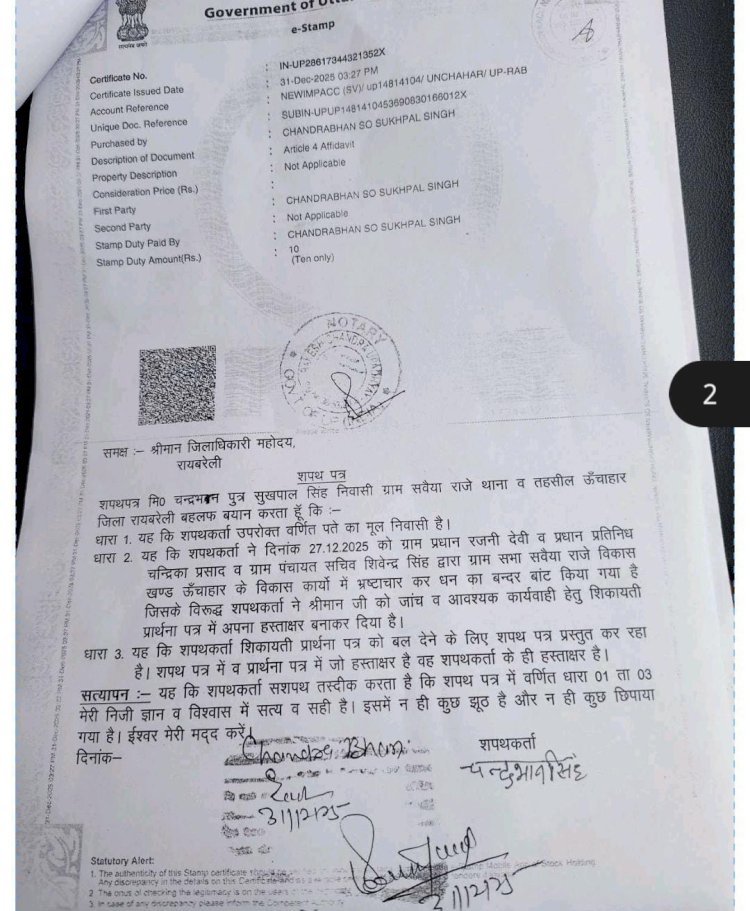 सत्यमेव जयते
Government of
e-Stamp
Certificate No. : IN-UP28617344321352X
Certificate Issued Date : 31-Dec-2025 03:27 PM
Account Reference : NEWIMPACC (SV)/ up14814104/ UNCHAHAR/ UP-RAB
Unique Doc. Reference : SUBIN-UPUP1481410453690830166012X
Purchased by : CHANDRABHAN SO SUKHPAL SINGH
Description of Document : Article 4 Affidavit
Property Description : Not Applicable
Consideration Price (Rs.) :
First Party : CHANDRABHAN SO SUKHPAL SINGH
Second Party : Not Applicable
Stamp Duty Paid By : CHANDRABHAN SO SUKHPAL SINGH
Stamp Duty Amount(Rs.) : 10
(Ten only)
NOTARY
2
समक्ष :– श्रीमान जिलाधिकारी महोदय,
रायबरेली
शपथ पत्र
शपथपत्र मि0 चन्द्रभान पुत्र सुखपाल सिंह निवासी ग्राम सवैया राजे थाना व तहसील ऊँचाहार
जिला रायबरेली बहलफ बयान करता हूँ कि :–
धारा 1. यह कि शपथकर्ता उपरोक्त वर्णित पते का मूल निवासी है।
धारा 2. यह कि शपथकर्ता ने दिनांक 27.12.2025 को ग्राम प्रधान रजनी देवी व प्रधान प्रतिनिधि
चन्द्रिका प्रसाद व ग्राम पंचायत सचिव शिवेन्द्र सिंह द्वारा ग्राम सभा सवैया राजे विकास
खण्ड ऊँचाहार के विकास कार्यो में भ्रष्टाचार कर धन का बन्दर बांट किया गया है
जिसके विरूद्ध शपथकर्ता ने श्रीमान जी को जांच व आवश्यक कार्यवाही हेतु शिकायती
प्रार्थना पत्र में अपना हस्ताक्षर बनाकर दिया है।
धारा 3. यह कि शपथकर्ता शिकायती प्रार्थना पत्र को बल देने के लिए शपथ पत्र प्रस्तुत कर रहा
है। शपथ पत्र में व प्रार्थना पत्र में जो हस्ताक्षर है वह शपथकर्ता के ही हस्ताक्षर है।
सत्यापन :– यह कि शपथकर्ता सशपथ तस्दीक करता है कि शपथ पत्र में वर्णित धारा 01 ता 03
मेरी निजी ज्ञान व विश्वास में सत्य व सही है। इसमें न ही कुछ झूठ है और न ही कुछ छिपाया
गया है। ईश्वर मेरी मदद करें।
दिनांक–
शपथकर्ता
Chandra Bhan
चन्द्रभान सिंह
31/12/25
31/12/25
Statutory Alert:
1. The authenticity of this Stamp certificate should be Mobile App of Stock Holding
Any discrepancy in the details on this Certificate and
2. The onus of checking the legitimacy is on the users of
3. In case of any discrepancy please inform the Competent Authority